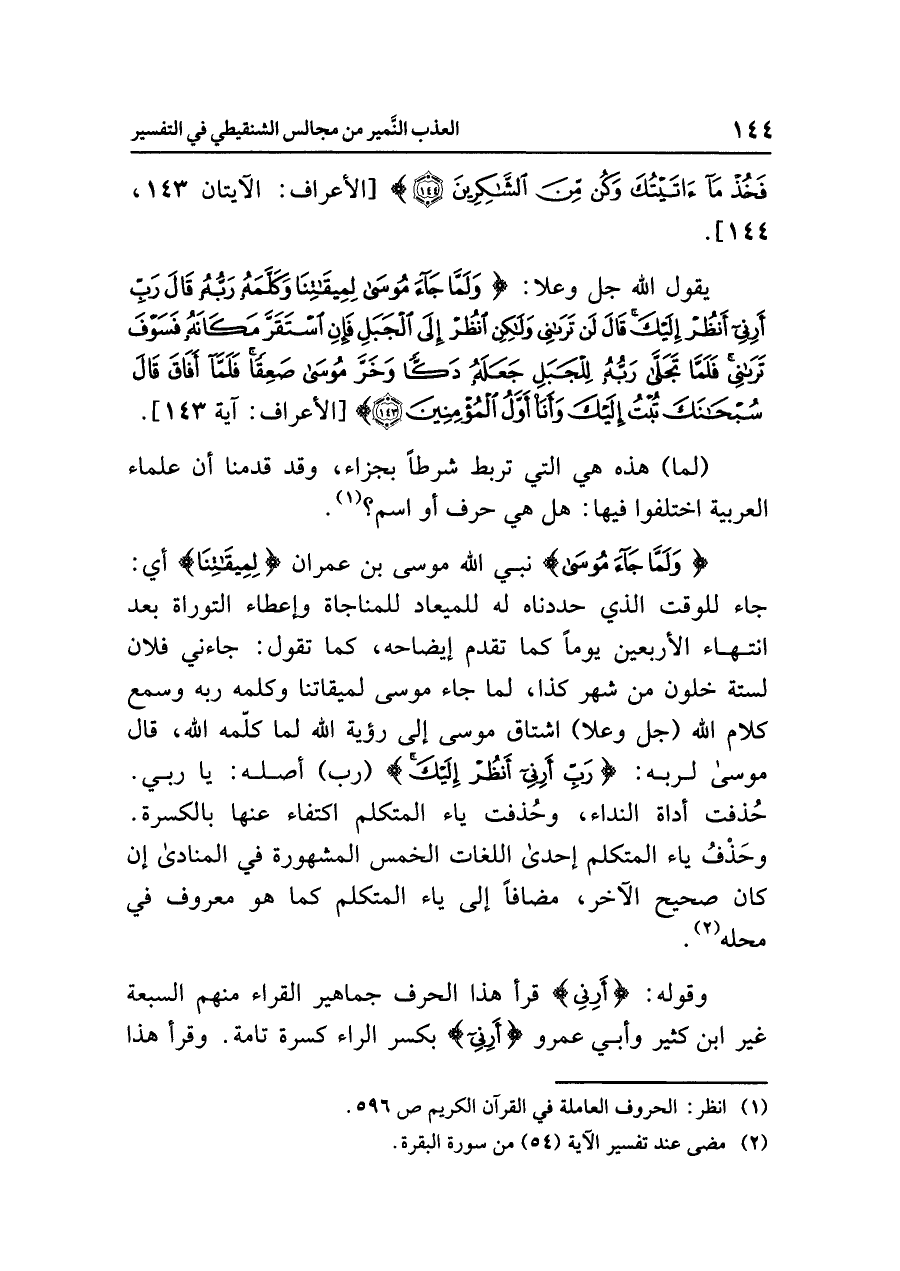 ١٤٤ العذب النَّمير من مجالس الشنقيطي في التفسير
فَخُذْ مَآ ءَاتَيْتُكَ وَكُن مِّنَ ٱلشَّٰكِرِينَ ١٤٤ ﴾ [الأعراف: الآيتان ١٤٣،
١٤٤].
يقول الله جل وعلا: ﴿ وَلَمَّا جَآءَ مُوسَىٰ لِمِيقَٰتِنَا وَكَلَّمَهُۥ رَبُّهُۥ قَالَ رَبِّ
أَرِنِىٓ أَنظُرْ إِلَيْكَۚ قَالَ لَن تَرَىٰنِى وَلَٰكِنِ ٱنظُرْ إِلَى ٱلْجَبَلِ فَإِنِ ٱسْتَقَرَّ مَكَانَهُۥ فَسَوْفَ
تَرَىٰنِىۚ فَلَمَّا تَجَلَّىٰ رَبُّهُۥ لِلْجَبَلِ جَعَلَهُۥ دَكًّا وَخَرَّ مُوسَىٰ صَعِقًاۚ فَلَمَّآ أَفَاقَ قَالَ
سُبْحَٰنَكَ تُبْتُ إِلَيْكَ وَأَنَا۠ أَوَّلُ ٱلْمُؤْمِنِينَ ١٤٣ ﴾ [الأعراف: آية ١٤٣].
(لما) هذه هي التي تربط شرطاً بجزاء، وقد قدمنا أن علماء
العربية اختلفوا فيها: هل هي حرف أو اسم؟(١).
﴿ وَلَمَّا جَآءَ مُوسَىٰ﴾ نبـي الله موسى بن عمران ﴿لِمِيقَٰتِنَا﴾ أي:
جاء للوقت الذي حددناه له للميعاد للمناجاة وإعطاء التوراة بعد
انتهـاء الأربعين يوماً كما تقدم إيضاحه، كما تقول: جاءني فلان
لستة خلون من شهر كذا، لما جاء موسى لميقاتنا وكلمه ربه وسمع
كلام الله (جل وعلا) اشتاق موسى إلى رؤية الله لما كلّمه الله، قال
موسىٰ لـربـه: ﴿ رَبِّ أَرِنِىٓ أَنظُرْ إِلَيْكَۚ ﴾ (رب) أصلـه: يا ربـي.
حُذفت أداة النداء، وحُذفت ياء المتكلم اكتفاء عنها بالكسرة.
وحَذْفُ ياء المتكلم إحدىٰ اللغات الخمس المشهورة في المنادىٰ إن
كان صحيح الآخر، مضافاً إلى ياء المتكلم كما هو معروف في
محله(٢).
وقوله: ﴿أَرِنِى﴾ قرأ هذا الحرف جماهير القراء منهم السبعة
غير ابن كثير وأبـي عمرو ﴿أَرِنِىٓ﴾ بكسر الراء كسرة تامة. وقرأ هذا
(١) انظر: الحروف العاملة في القرآن الكريم ص ٥٩٦.
(٢) مضى عند تفسير الآية (٥٤) من سورة البقرة.